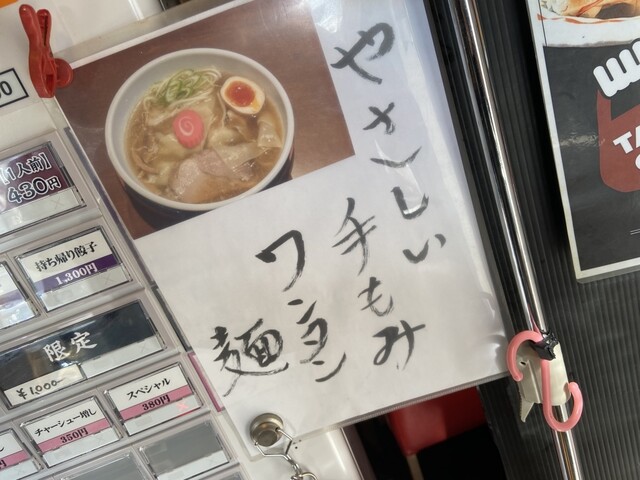 やさしい
手もみ
ワンタン
麺
【1人前】
430円
持ち帰り餃子
1,300円
限定
¥1,000
チャーシュー増し
350円
スペシャル
380円